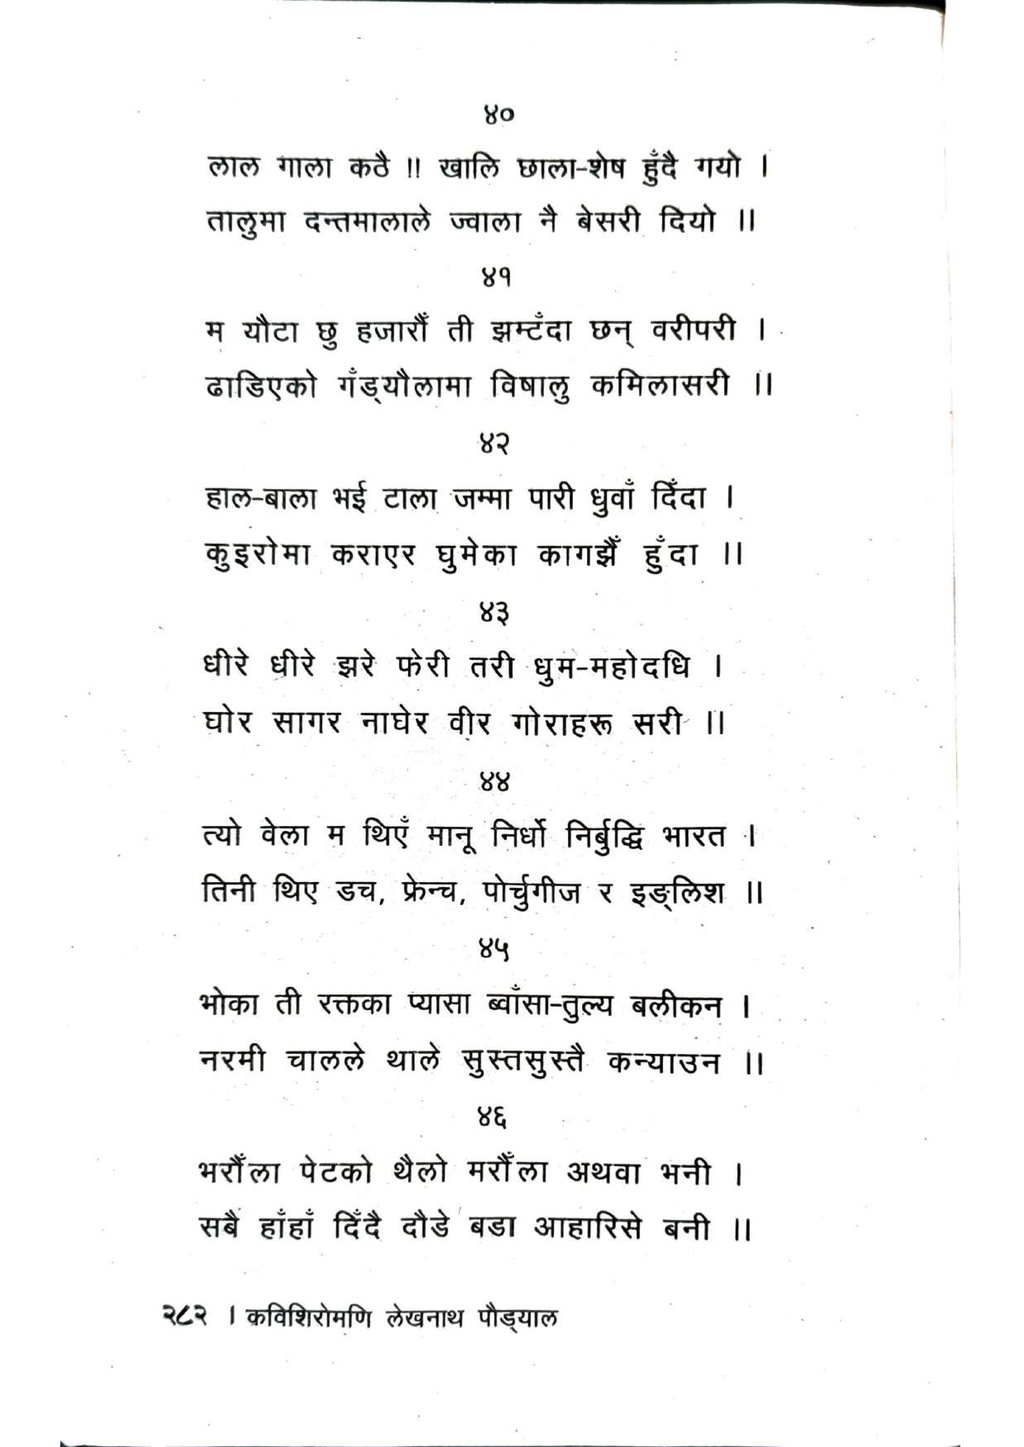 ४०
लाल गाला कठै !! खालि छाला-शेष हुँदै गयो ।
तालुमा दन्तमालाले ज्वाला नै बेसरी दियो ॥
४१
म यौटा छु हजारौँ ती झम्टँदा छन् वरीपरी ।
ढाडिएको गँड्यौलामा विषालु कमिलासरी ॥
४२
हाल-बाला भई टाला जम्मा पारी धुवाँ दिँदा ।
कुइरोमा कराएर घुमेका कागझैँ हुँदा ॥
४३
धीरे धीरे झरे फेरी तरी धुम-महोदधि ।
घोर सागर नाघेर वीर गोराहरू सरी ॥
४४
त्यो वेला म थिएँ मानू निर्धो निर्बुद्धि भारत ।
तिनी थिए डच, फ्रेन्च, पोर्चुगीज र इङ्लिश ॥
४५
भोका ती रक्तका प्यासा ब्वाँसा-तुल्य बलीकन ।
नरमी चालले थाले सुस्तसुस्तै कन्याउन ॥
४६
भरौँला पेटको थैलो मरौँला अथवा भनी ।
सबै हाँहाँ दिँदै दौडे बडा आहारिसे बनी ॥
२८२ । कविशिरोमणि लेखनाथ पौड्याल